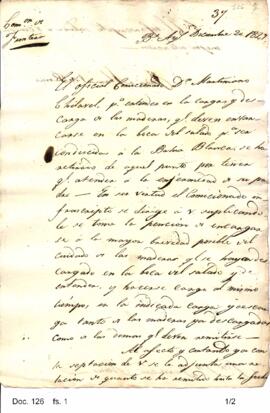 37
Comon. de
Fronteras
Bs. Ays. Diciembre de 1827
El oficial comisionado Dn. Martiniano
Chilavert, pa. entender en la carga y des-
carga de las maderas, ql. deven embar-
carse en la boca del salado pa. ser
conducidas a la Bahia Blanca, se ha
retirado de aquel punto por
ql. atender a la enfermedad de su pa-
dre — En esa virtud el Comisionado in-
frascripto se dirige a V suplicando-
le se tome la pencion de encargar-
se a la mayor brevedad posible del
cuidado de las maderas ql. se hayan des-
cargado en la boca del salado y de
entender, y hacerse cargo al mismo
tiempo, en la indicada carga y descar-
ga tanto de las maderas ya descargadas
como de las demas ql. deven remitirse —
Al efecto y contando ya con
la aceptacion de V se le adjunta una re-
lacion de quanto se ha remitido hasta la fecha
Doc. 126 fs. 1
1/2